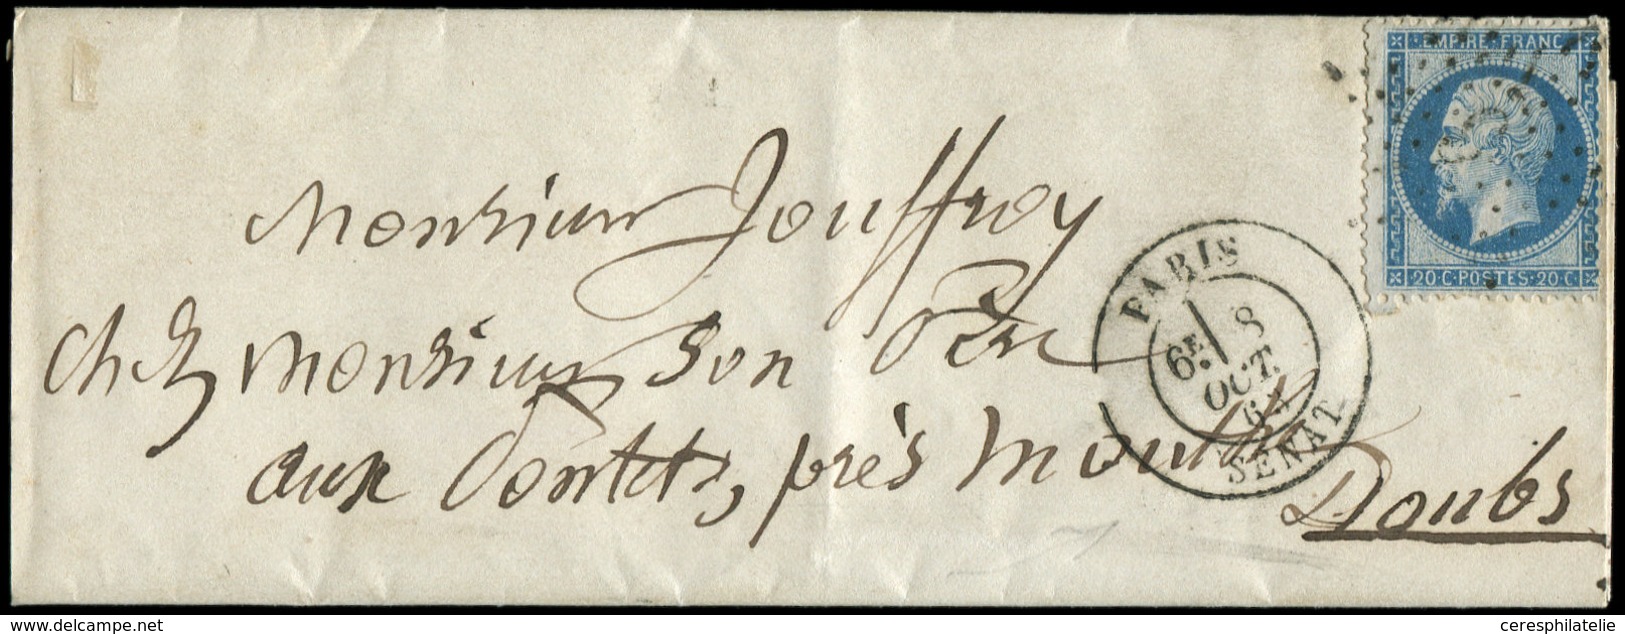 EMPIRE·FRANC
20·C·POSTES·20·C
Monsieur Jouffroy
chez monsieur son Père
aux Pontets, près Mouthe
Doubs
PARIS
6E 8
OCT.
SENAT
delcampe.net
ceresphilatelie